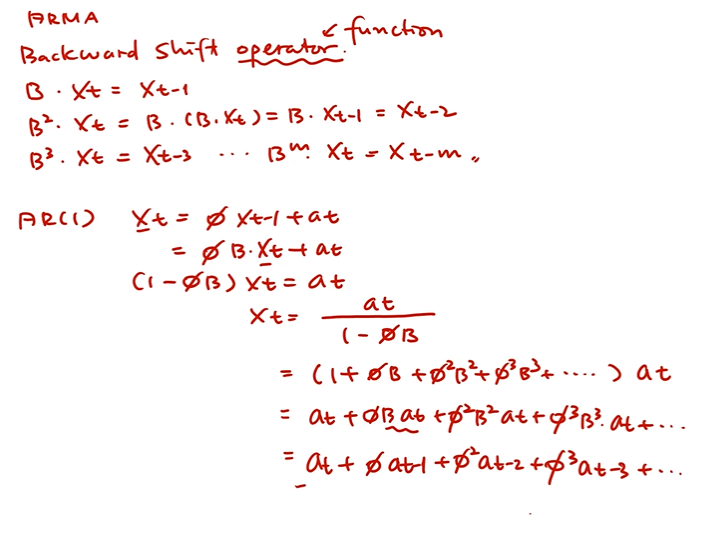 ARMA
Backward shift operator. ↙ function
B · Xt = Xt-1
B². Xt = B · (B.Xt) = B · Xt-1 = Xt-2
B³ · Xt = Xt-3 ... Bᵐ. Xt = Xt-m 〟
AR(1) Xt = ∅ Xt-1 + at
= ∅ B. Xt + at
(1 - ∅B) Xt = at
Xt = at / (1 - ∅B)
= (1 + ∅B + ∅²B² + ∅³B³ + ....) at
= at + ∅Bat + ∅²B²at + ∅³B³. at + ...
= at + ∅at-1 + ∅²at-2 + ∅³at-3 + ...